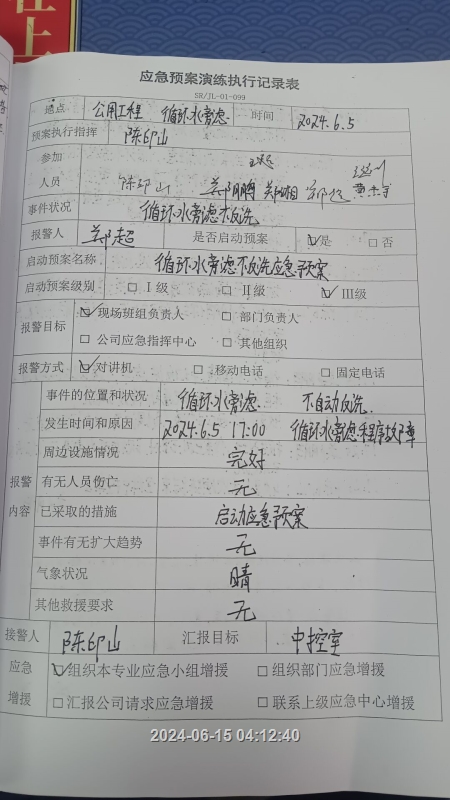 上
应急预案演练执行记录表
SR/JL-01-099
地点 公用工程 循环水旁滤 时间 2024.6.5
预案执行指挥 陈印山
参加人员 陈印山 郑湘
事件状况 循环水旁滤不反洗
报警人 郑超 是否启动预案 ☑是 □否
启动预案名称 循环水旁滤不反洗应急预案
启动预案级别 □Ⅰ级 □Ⅱ级 ☑Ⅲ级
报警目标 ☑现场班组负责人 □部门负责人
□公司应急指挥中心 □其他组织
报警方式 ☑对讲机 □移动电话 □固定电话
报警内容
事件的位置和状况 循环水旁滤 不自动反洗
发生时间和原因 2024.6.5 17:00 循环水旁滤程序故障
周边设施情况 完好
有无人员伤亡 无
已采取的措施 启动应急预案
事件有无扩大趋势 无
气象状况 晴
其他救援要求 无
接警人 陈印山 汇报目标 中控室
应急增援 ☑组织本专业应急小组增援 □组织部门应急增援
□汇报公司请求应急增援 □联系上级应急中心增援
2024-06-15 04:12:40